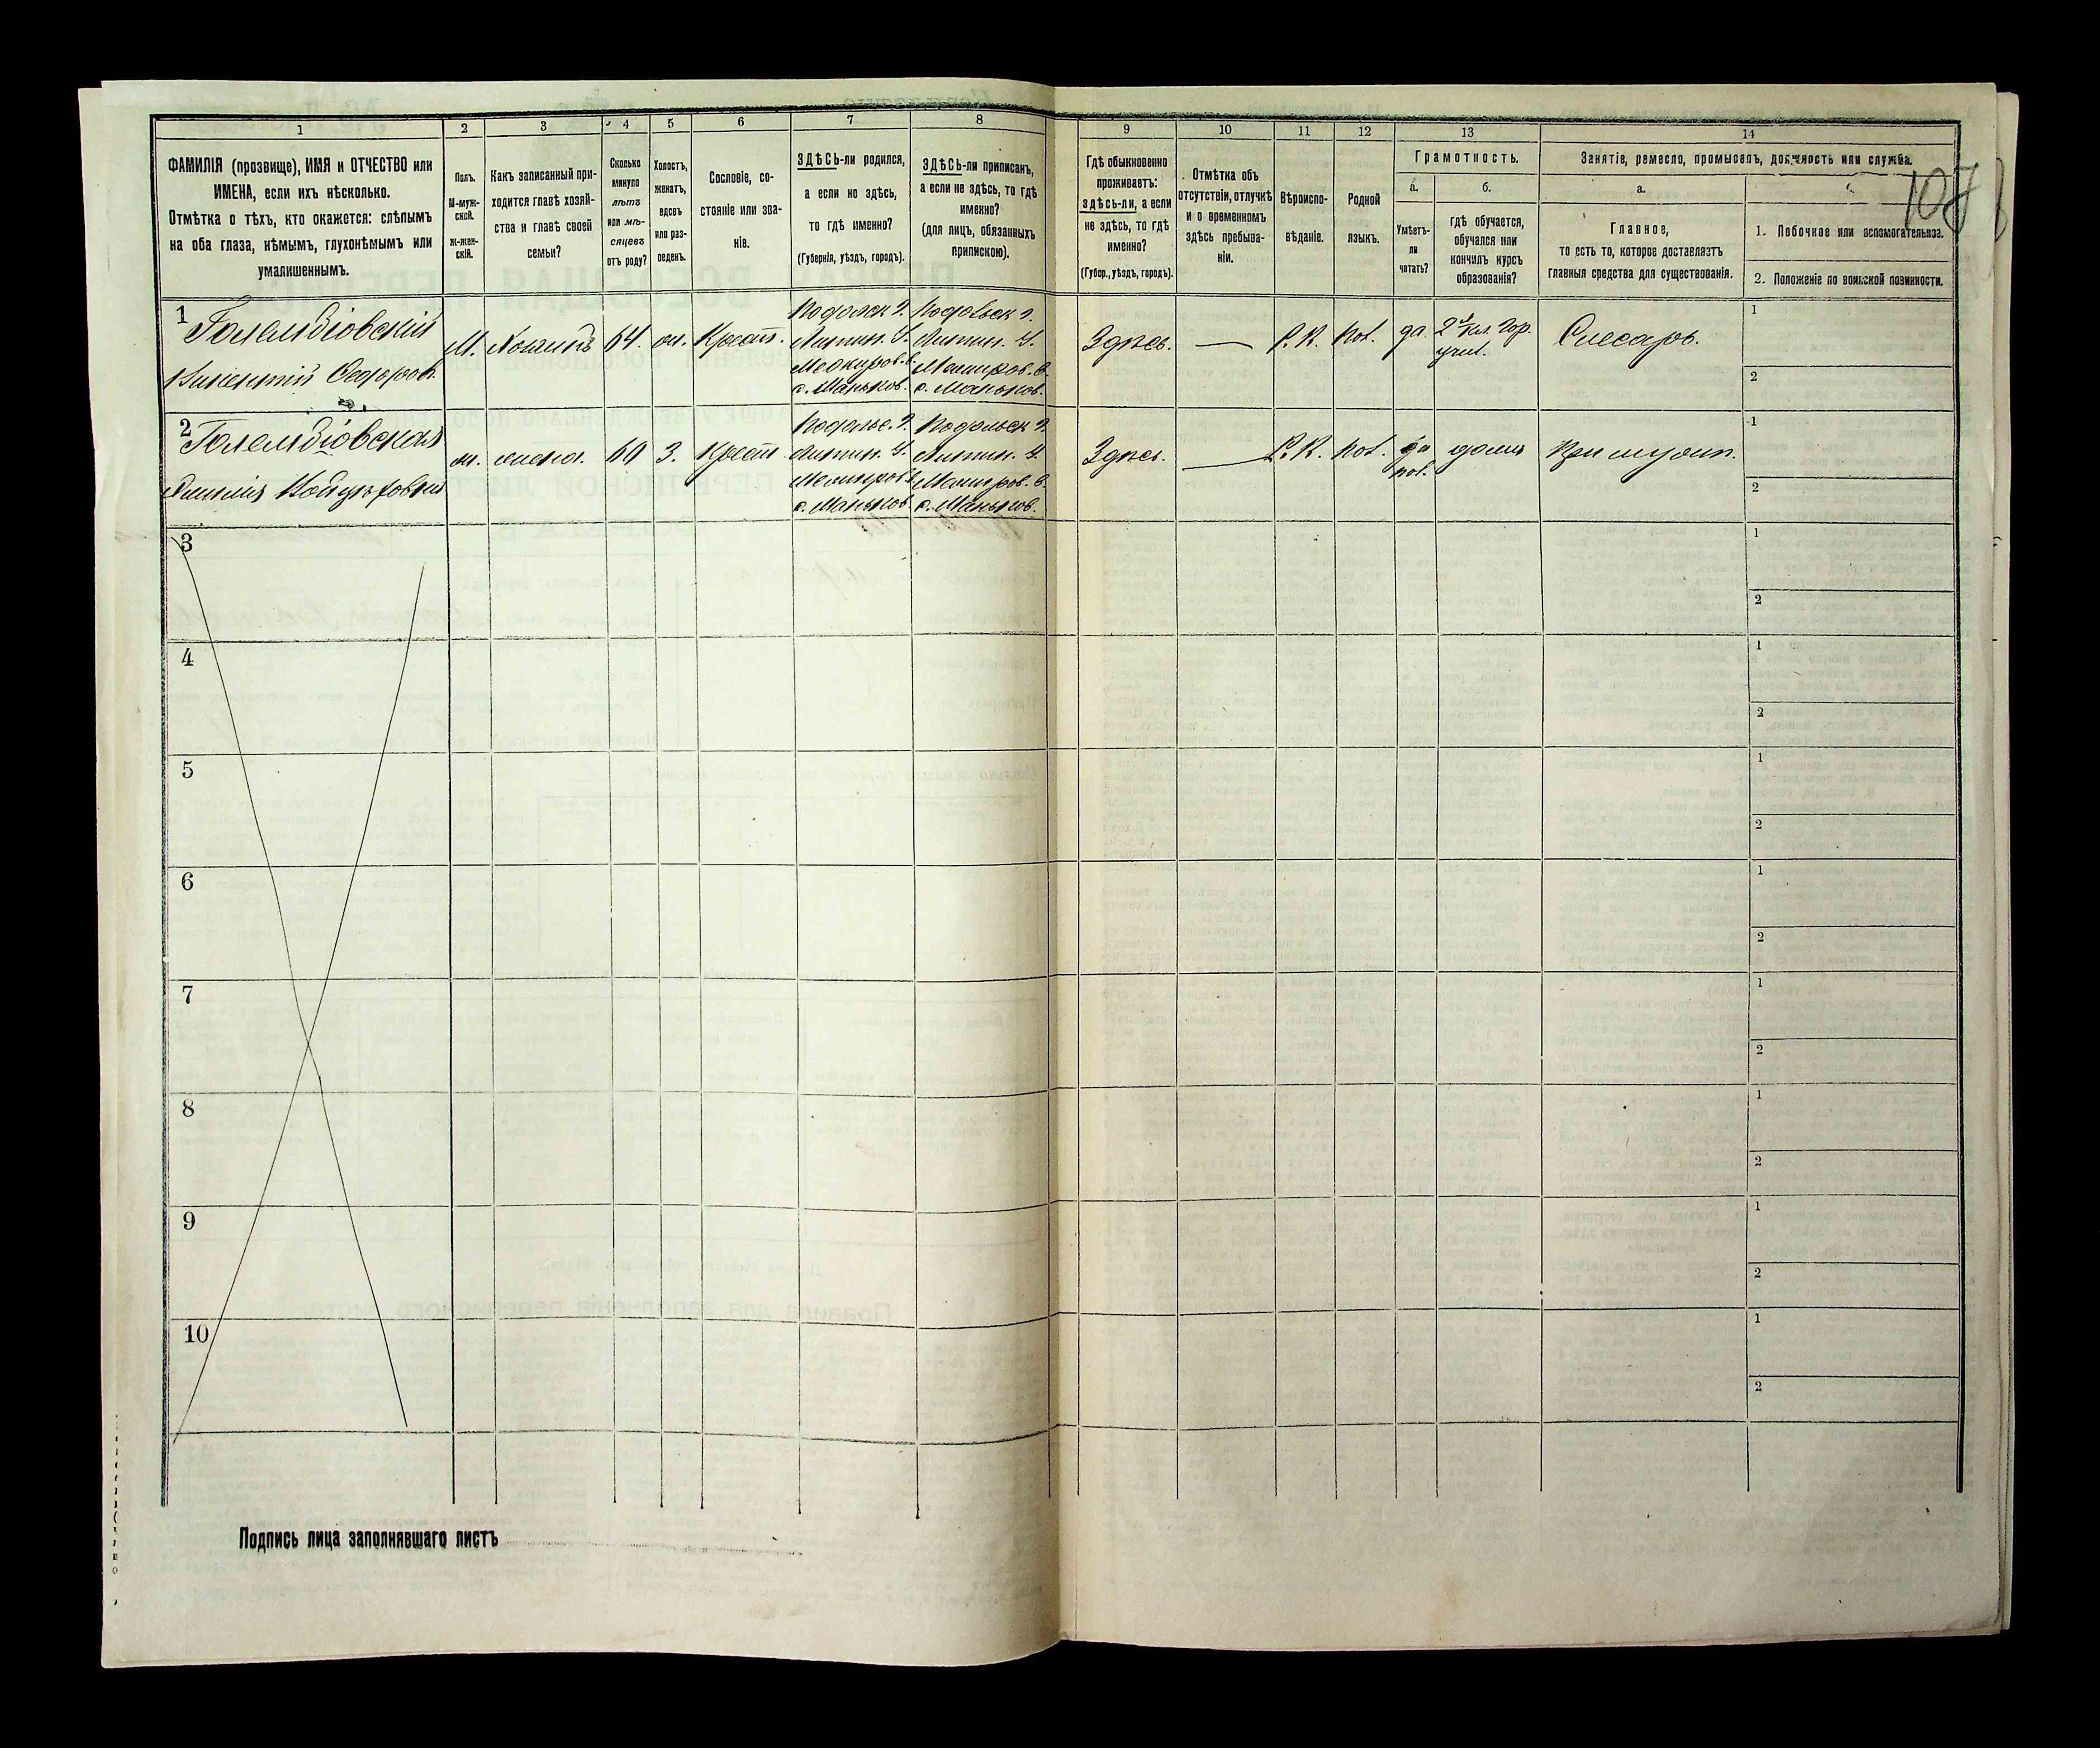 1
2
3
4
5
6
7
8
9
10
11
12
13
14
ФАМИЛІЯ (прозвище), ИМЯ и ОТЧЕСТВО или
ИМЕНА, если ихъ нѣсколько.
Отмѣтка о тѣхъ, кто окажется: слѣпымъ
на оба глаза, нѣмымъ, глухонѣмымъ или
умалишеннымъ.
Полъ.
М-муж-
ской.
Ж-жен-
скій.
Какъ записанный при-
ходится главѣ хозяй-
ства и главѣ своей
семьи?
Сколько
минуло
лѣтъ
или мѣ-
сяцевъ
отъ роду?
Холостъ,
женатъ,
вдовъ
или раз-
веденъ.
Сословіе, со-
стояніе или зва-
ніе.
ЗДѢСЬ-ли родился,
а если не здѣсь,
то гдѣ именно?
(Губернія, уѣздъ, городъ).
ЗДѢСЬ-ли приписанъ,
а если не здѣсь, то гдѣ
именно?
(для лицъ, обязанныхъ
припискою).
Гдѣ обыкновенно
проживаетъ:
здѣсь-ли, а если
не здѣсь, то гдѣ
именно?
(Губер., уѣздъ, городъ).
Отмѣтка объ
отсутствіи, отлучкѣ
и о временномъ
здѣсь пребыва-
ніи.
Вѣроиспо-
вѣданіе.
Родной
языкъ.
Грамотность.
а.
б.
Умѣетъ-
ли
читать?
гдѣ обучается,
обучался или
кончилъ курсъ
образованія?
Занятіе, ремесло, промыселъ, должность или служба.
а.
Главное,
то есть то, которое доставляетъ
главныя средства для существованія.
107
1. Побочное или вспомогательное.
2. Положеніе по воинской повинности.
1
Голембіовскій
Викентій Федоров.
М.
Хозяинъ
64.
жн.
Крест.
Подольск г.
Литин. У.
с. Маньков.
Подольск г.
Литин. У.
с. Маньков.
Здѣсь.
—
Р. К.
Пол.
да
2х кл. Гор.
учил.
Слесарь.
1
2
2
Голембіовская
жена.
60
З.
Крест
Подольс. г.
Литин. У.
с. Маньков
Подольск г.
Литин. У.
с. Маньков.
Здѣсь.
—
Р. К.
Пол.
да
пол.
дома
При мужѣ.
1
2
3
1
2
4
1
2
5
1
2
6
1
2
7
1
2
8
1
2
9
1
2
10
1
2
Подпись лица заполнявшаго листъ